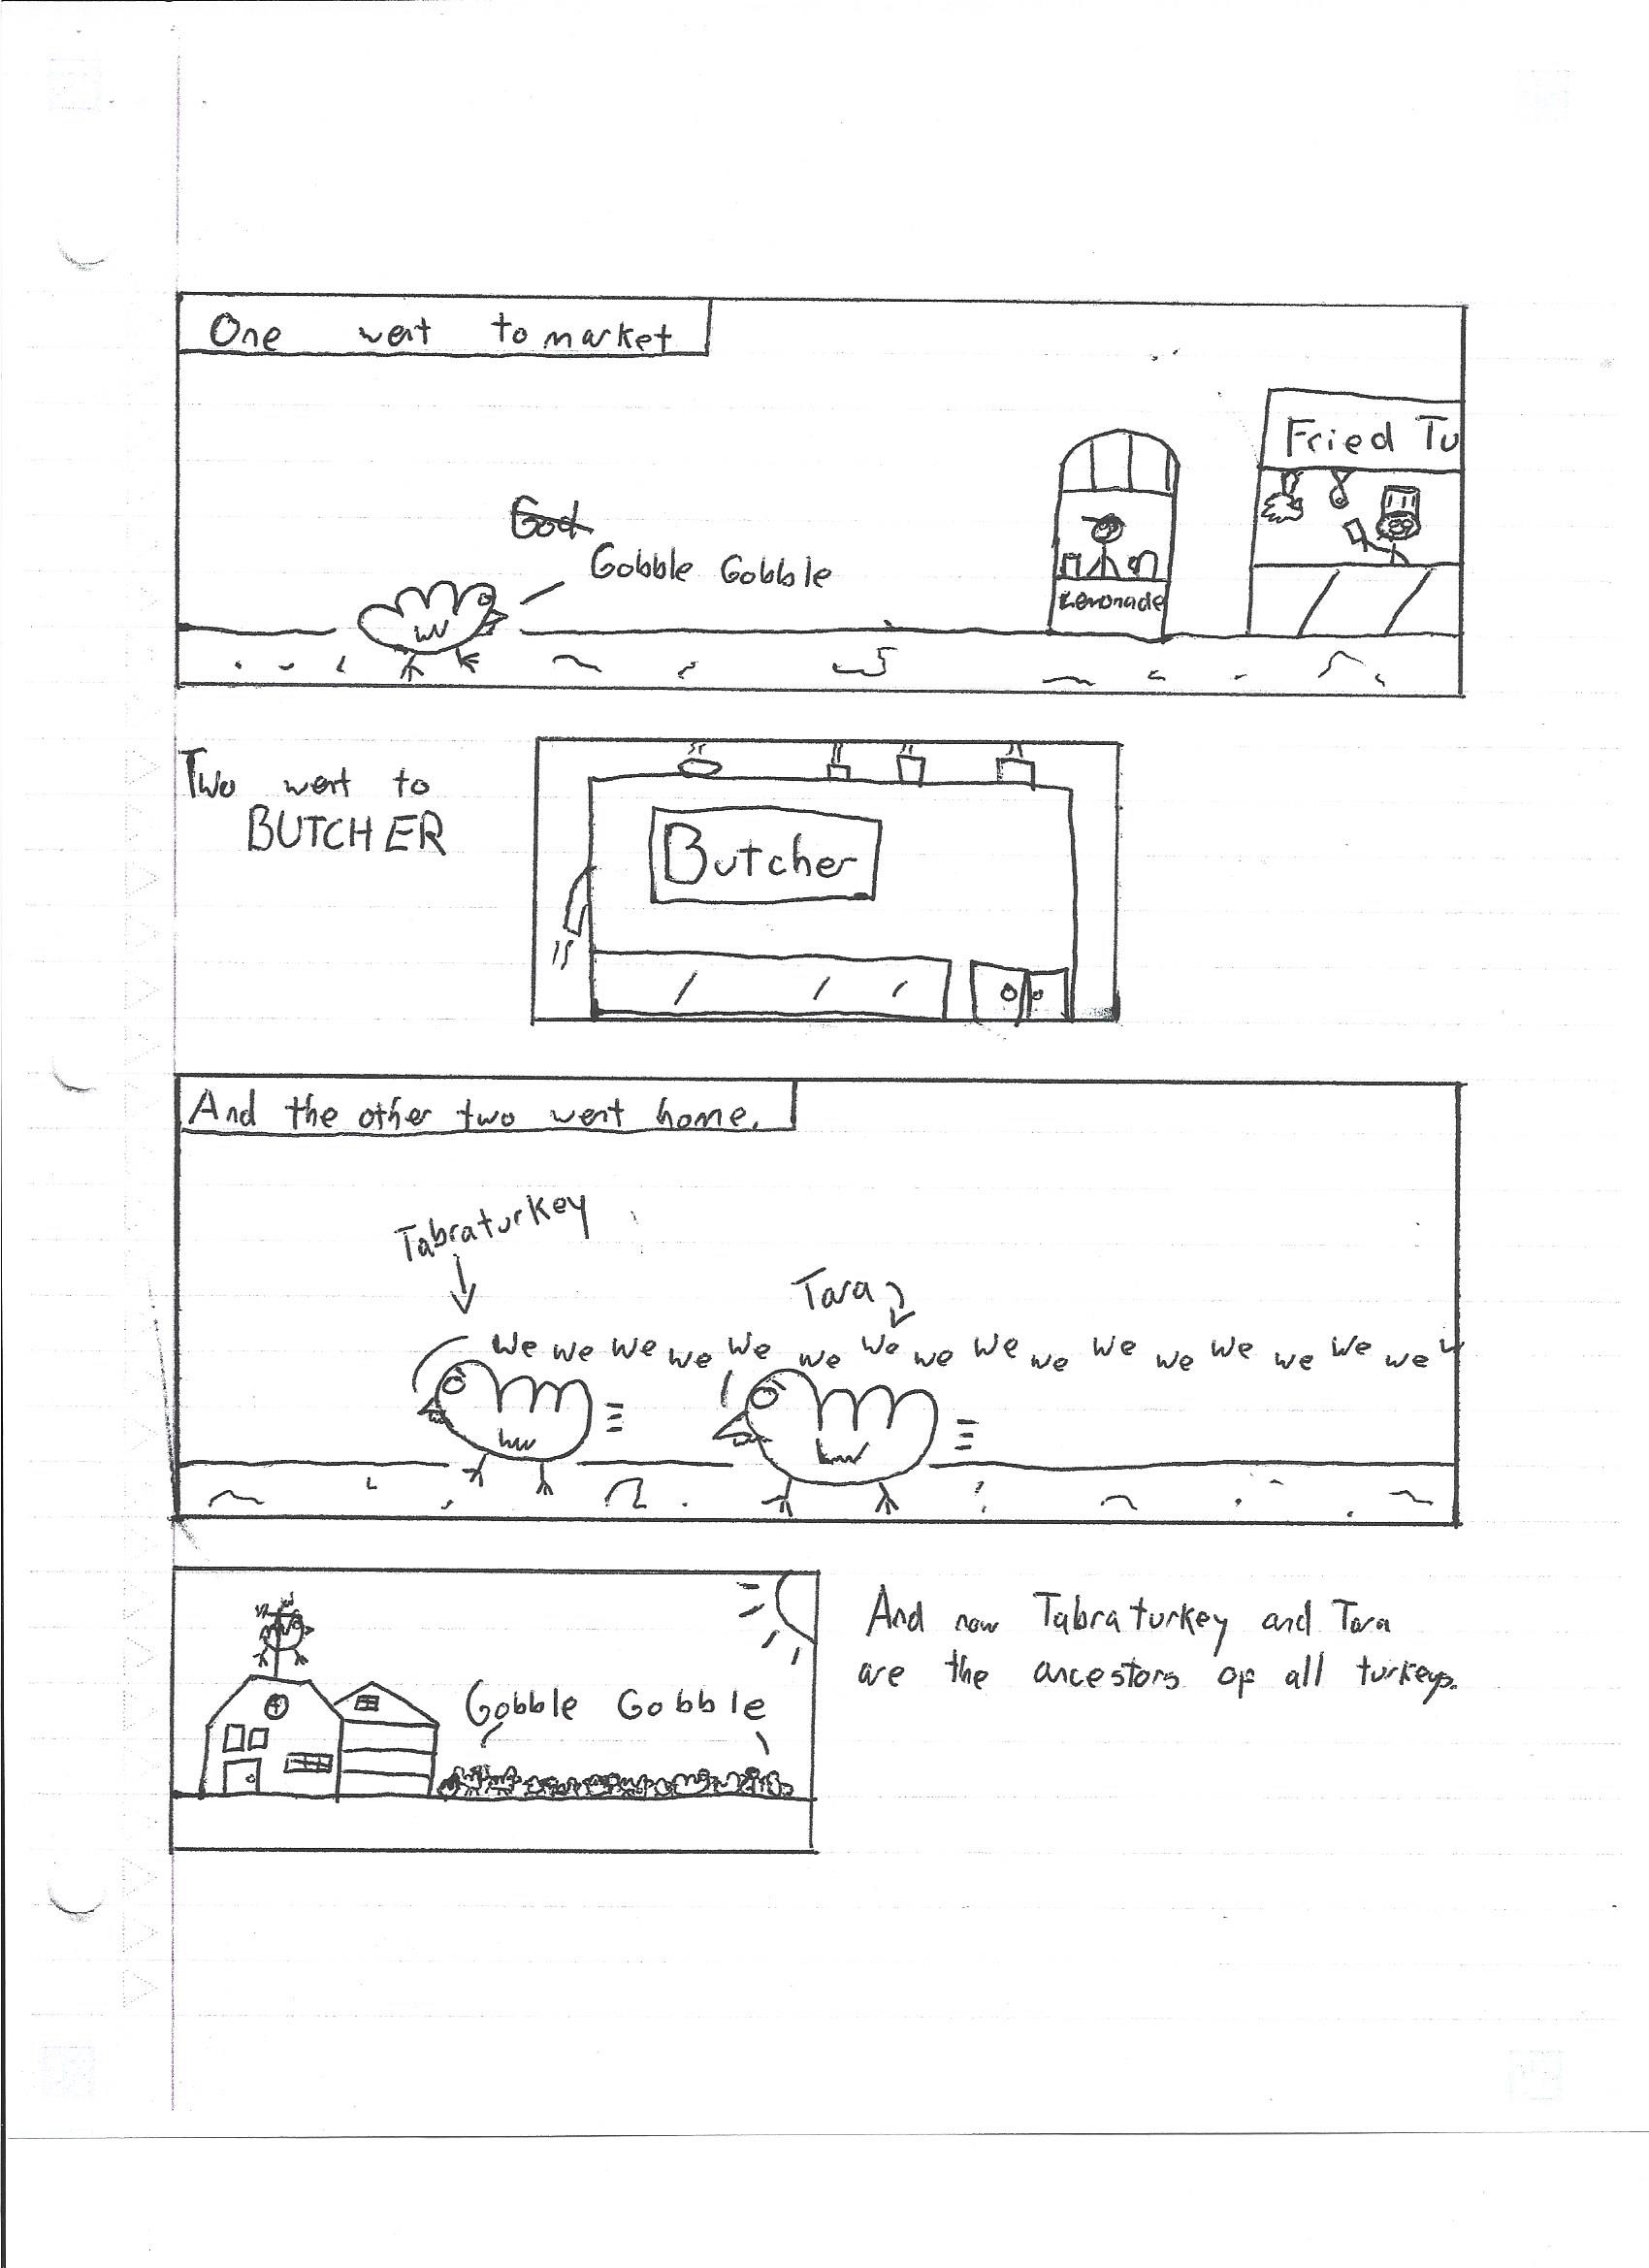 One went to market
Fried Tu
God
Gobble Gobble
Lemonade
Two went to
BUTCHER
Butcher
And the other two went home.
Tabraturkey
Tara
We we We we We we We we We we We we We we We we w
Gobble Gobble
And now Tabraturkey and Tara
are the ancestors of all turkeys.